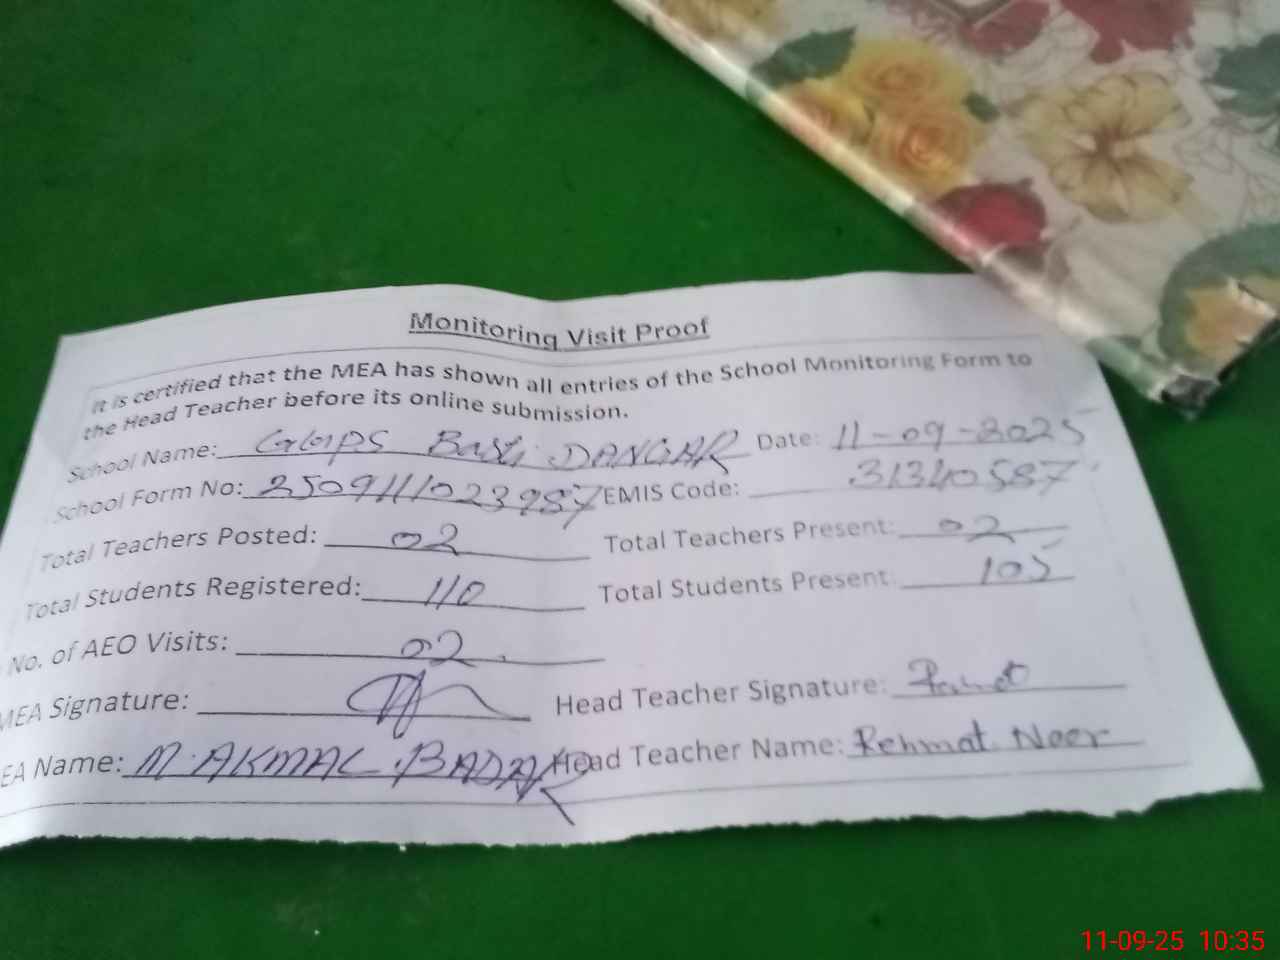 Monitoring Visit Proof
It is certified that the MEA has shown all entries of the School Monitoring Form to
the Head Teacher before its online submission.
School Name: GGPS Basti DANGAR Date: 11-09-2025
School Form No: 25091111023987 EMIS Code: 31340587
Total Teachers Posted: 02 Total Teachers Present: 02
Total Students Registered: 110 Total Students Present: 105
No. of AEO Visits: 02
MEA Signature: Head Teacher Signature: Rehmat
EA Name: M. AKMAL BADAR Head Teacher Name: Rehmat Noor
11-09-25 10:35